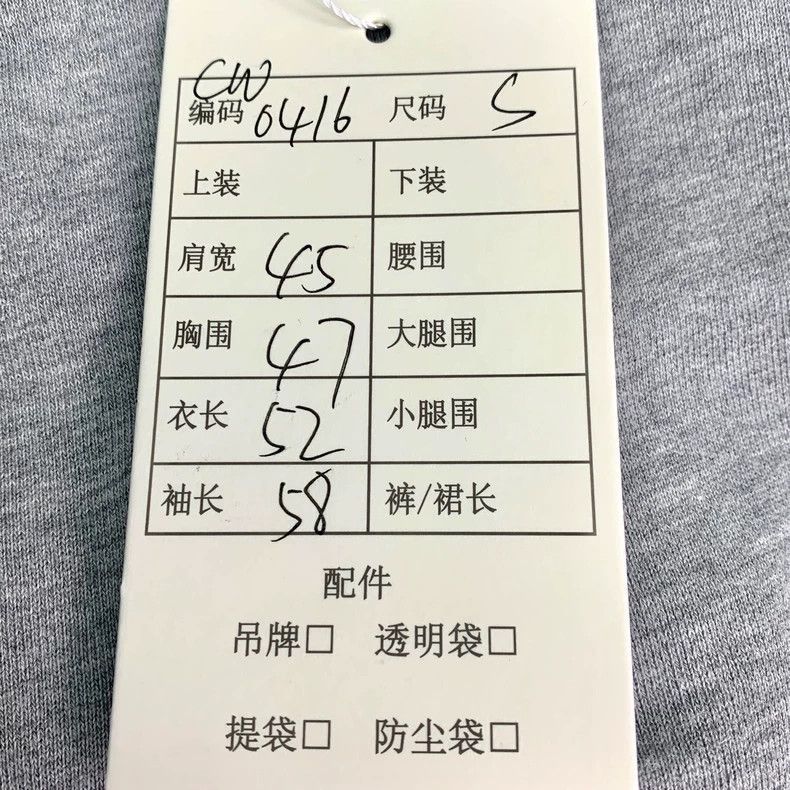 CW
编码 0416 尺码 S
上装 下装
肩宽 45 腰围
胸围 47 大腿围
衣长 52 小腿围
袖长 58 裤/裙长
配件
吊牌□ 透明袋□
提袋□ 防尘袋□